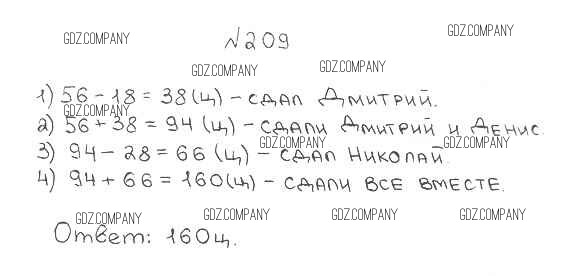 GDZ.COMPANY
№209
GDZ.COMPANY
GDZ.COMPANY
GDZ.COMPANY
1) 56 - 18 = 38 (ц) - сдал Дмитрий.
GDZ.COMPANY
2) 56 + 38 = 94 (ц) - сдали Дмитрий и Денис.
GDZ.COMPANY
GDZ.COMPANY
3) 94 - 28 = 66 (ц) - сдал Николай.
4) 94 + 66 = 160 (ц) - сдали все вместе.
GDZ.COMPANY
GDZ.COMPANY
GDZ.COMPANY
GDZ.COMPANY
Ответ: 160ц.